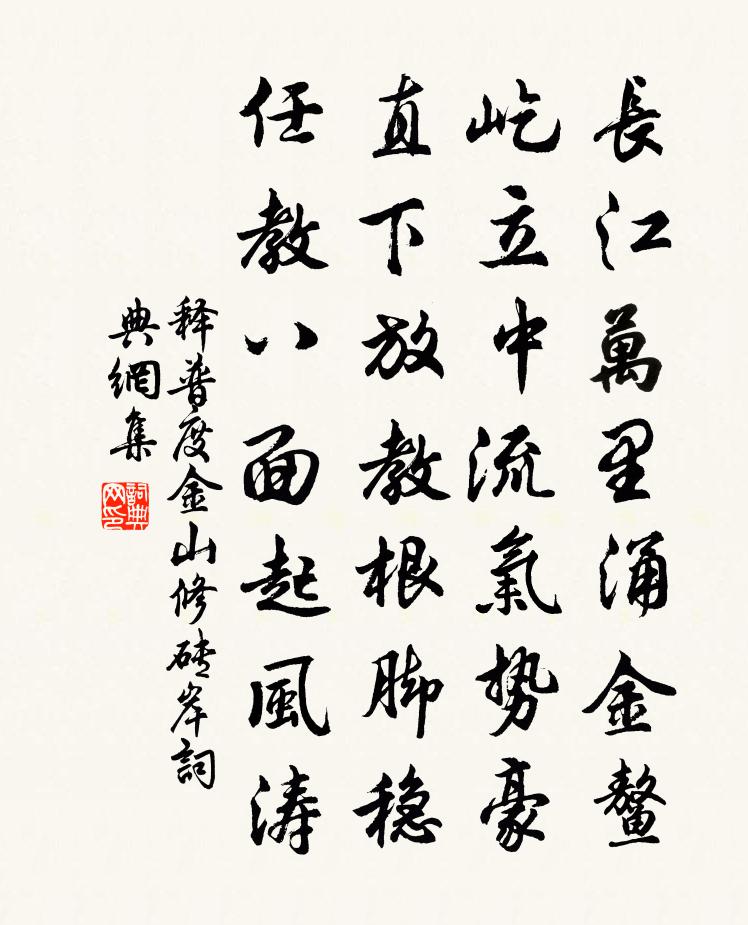 長江萬里涌金鰲
屹立中流氣势豪
直下放教根脚穏
任教八面起風涛
释普度金山修砖岸詞
典網集
詞典
网印